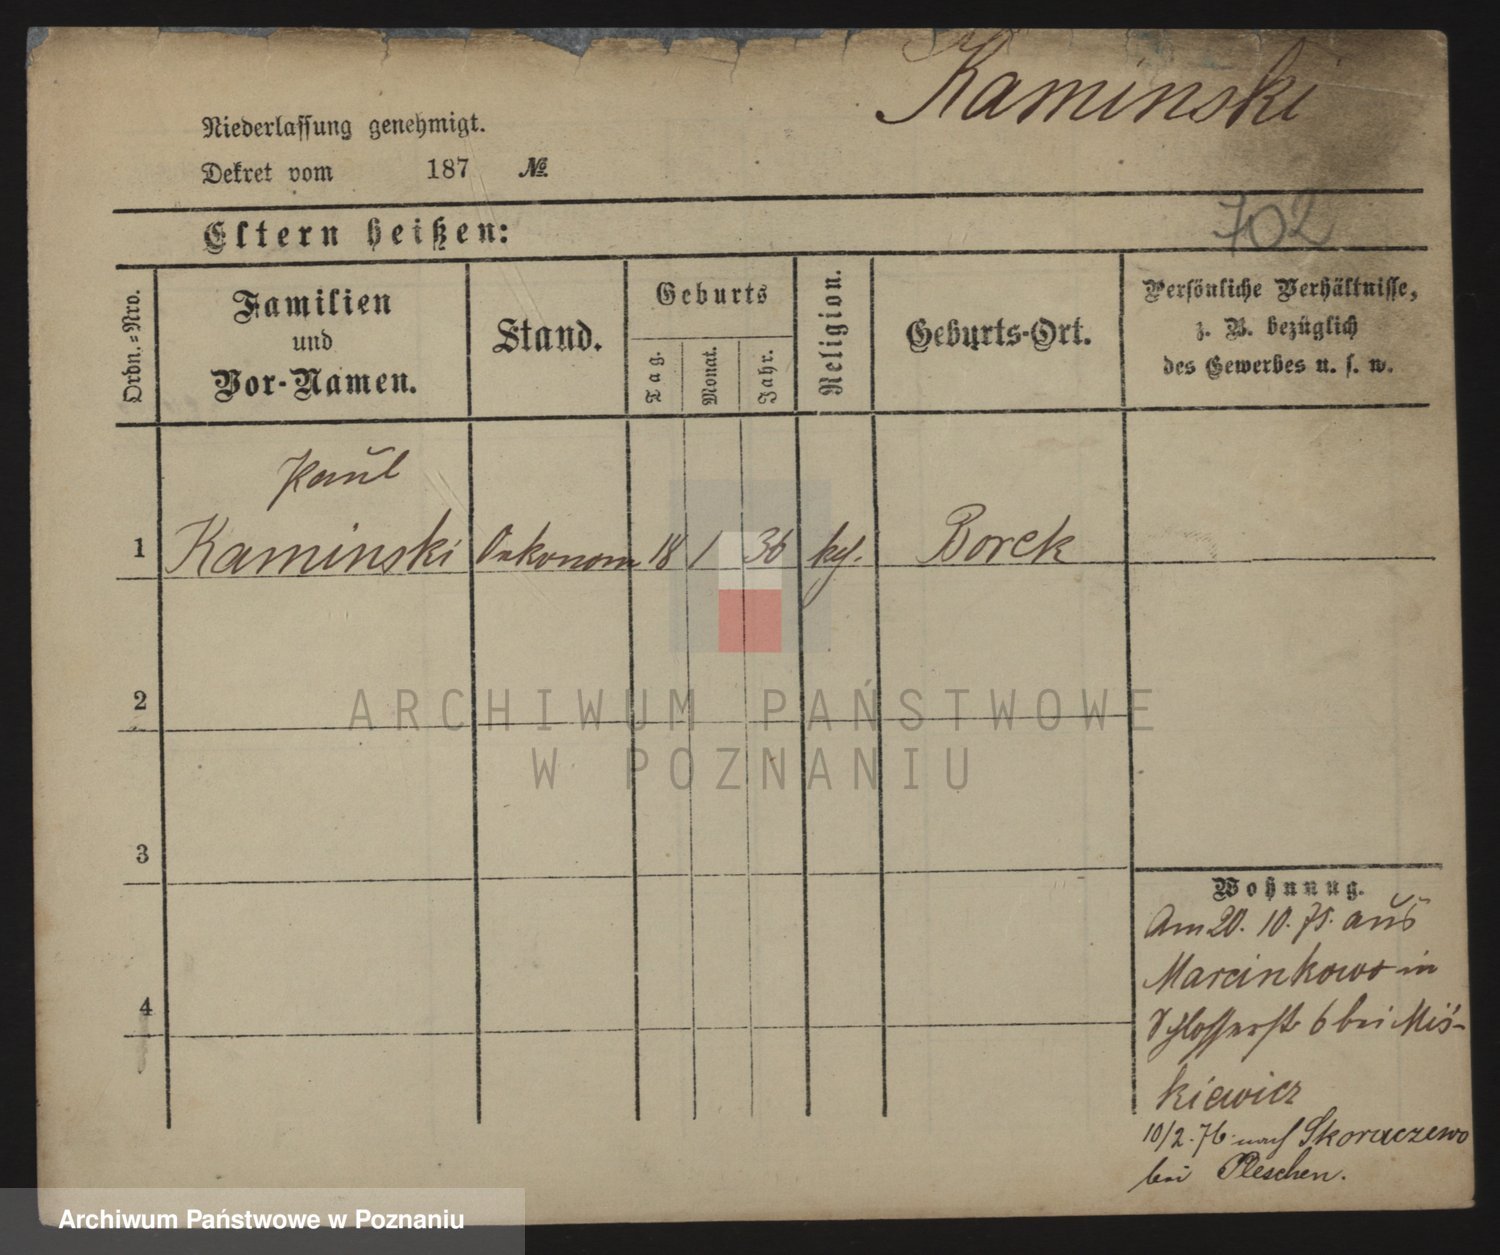 Kaminski
Niederlassung genehmigt.
Dekret vom 187 №
702
Eltern heißen:
Ordn.=Nro.
Familien
und
Vor-Namen.
Stand.
Geburts
Tag.
Monat.
Jahr.
Religion.
Geburts-Ort.
Persönliche Verhältnisse,
z. B. bezüglich
des Gewerbes u. s. w.
Paul
1 Kaminski Oekonom 18 1 36 Borek
2
3
4
Wohnung.
Am 20. 10. 75. aus
Marcinkowo in
Schlosserstr 6 bei Miś-
kiewicz
10/2. 76 nach Skoraczewo
bei Pleschen.
ARCHIWUM PAŃSTWOWE
W POZNANIU
Archiwum Państwowe w Poznaniu